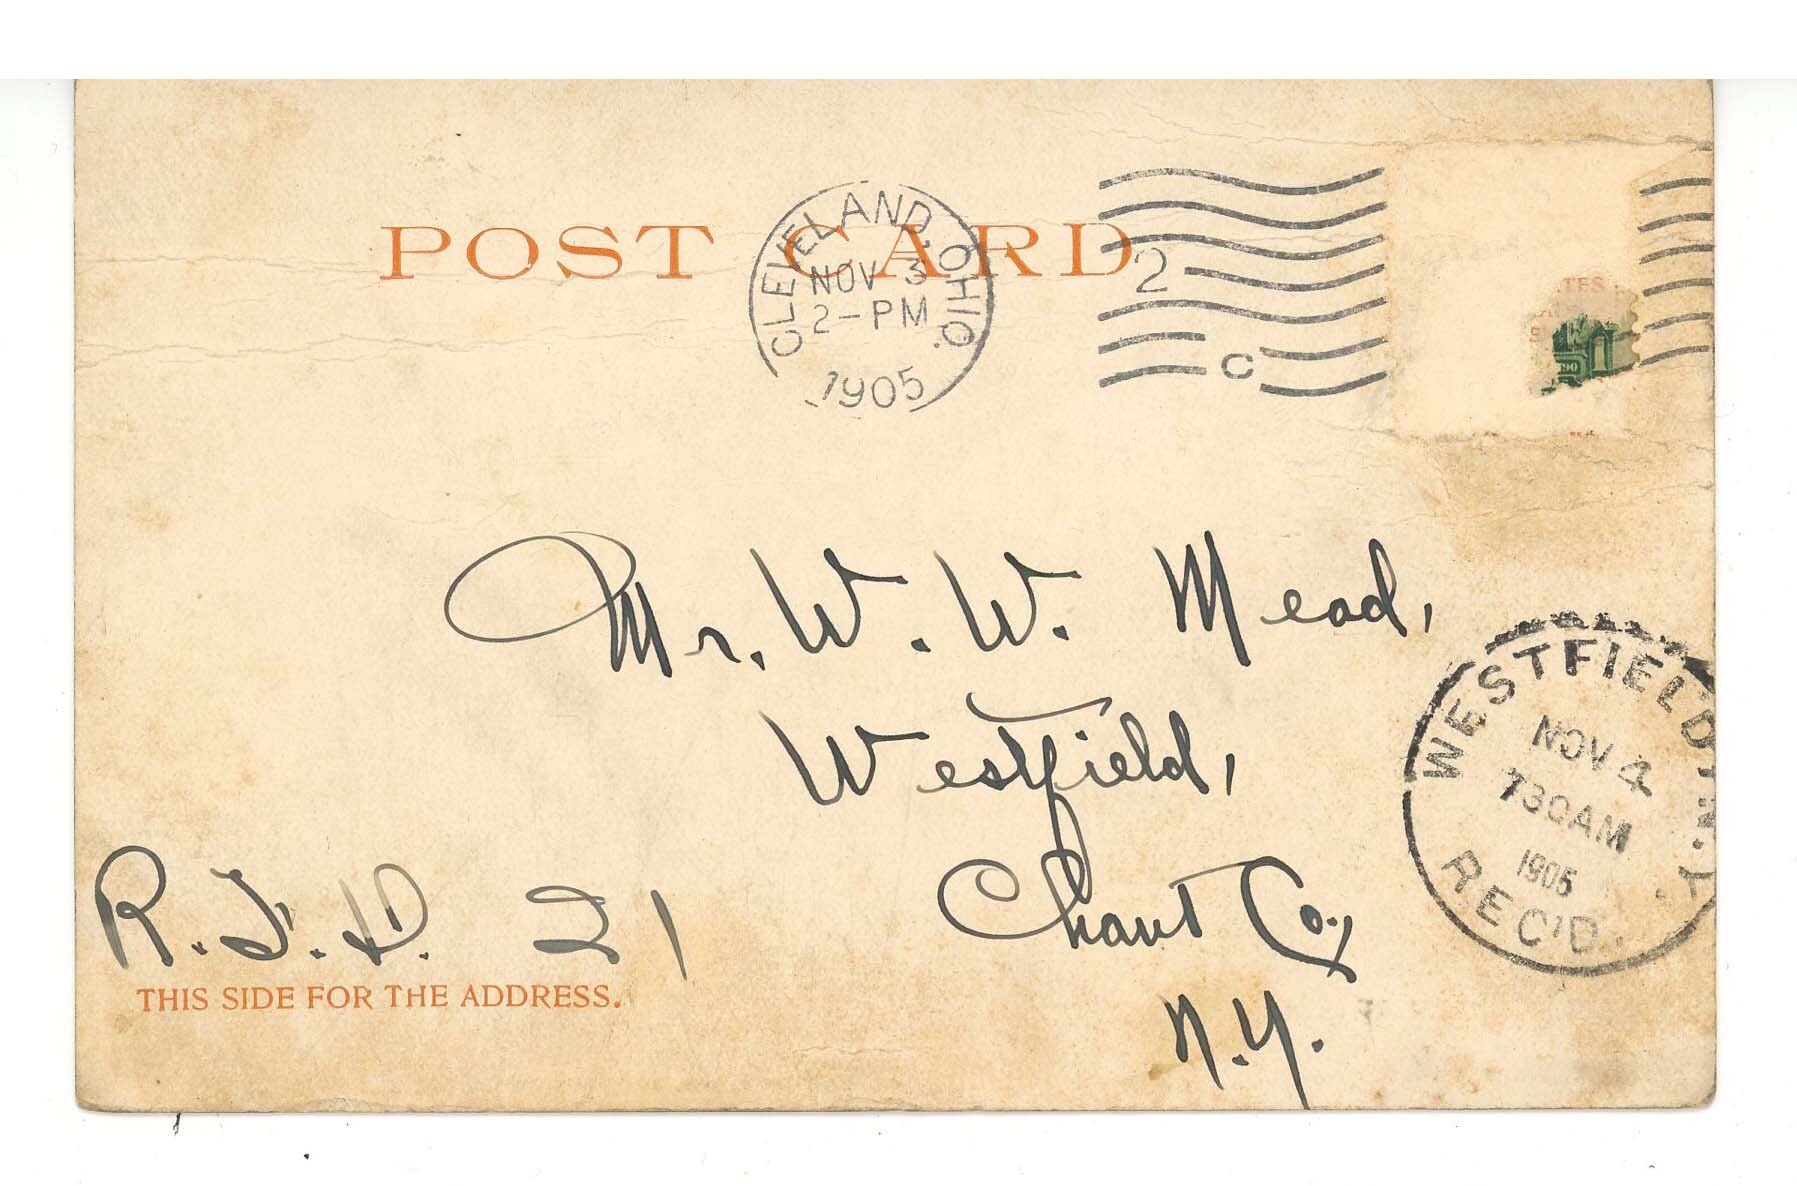 POST CARD
CLEVELAND, OHIO.
NOV 3
2-PM
1905
2
C
TES
1
Mr. W. W. Mead,
Westfield,
Chaut Co.,
N.Y.
R.F.D. 21
THIS SIDE FOR THE ADDRESS.
WESTFIELD, N.Y.
NOV 4
730AM
1905
REC'D.